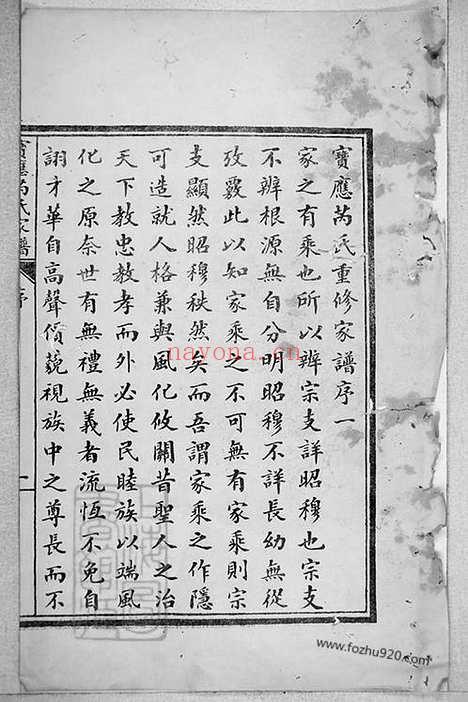 寶應芮氏重修家譜序一
家之有乘也所以辨宗支詳昭穆也宗支
不辨根源無自分明昭穆不詳長幼無從
攷覈此以知家乘之不可無有家乘則宗
支顯然昭穆秩然矣而吾謂家乘之作隱
可造就人格兼與風化攸關昔聖人之治
天下教忠教孝而外必使民睦族以端風
化之原奈世有無禮無義者流恆不免自
詡才華自高聲價藐視族中之尊長而不
寶應芮氏家譜 序 一
nayona.cn
www.fozhu920.com